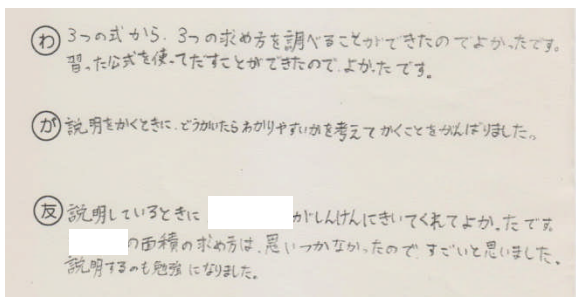 わ 3つの式から、3つの求め方を調べることができたのでよかったです。
習った公式を使ってだすことができたので、よかったです。
が 説明をかくときに、どうかいたらわかりやすいかを考えてかくことをがんばりました。
友 説明しているときに がしんけんにきいてくれてよかったです。
の面積の求め方は、思いつかなかったので、すごいと思いました。
説明するのも勉強になりました。